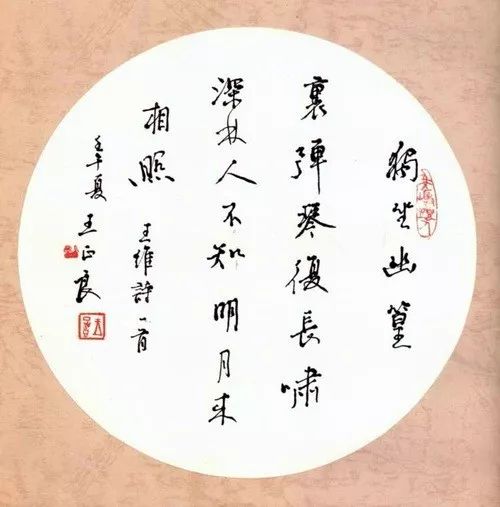 獨坐幽篁
裏彈琴復長嘯
深林人不知明月来
相照
王維詩一首
壬午夏王正良